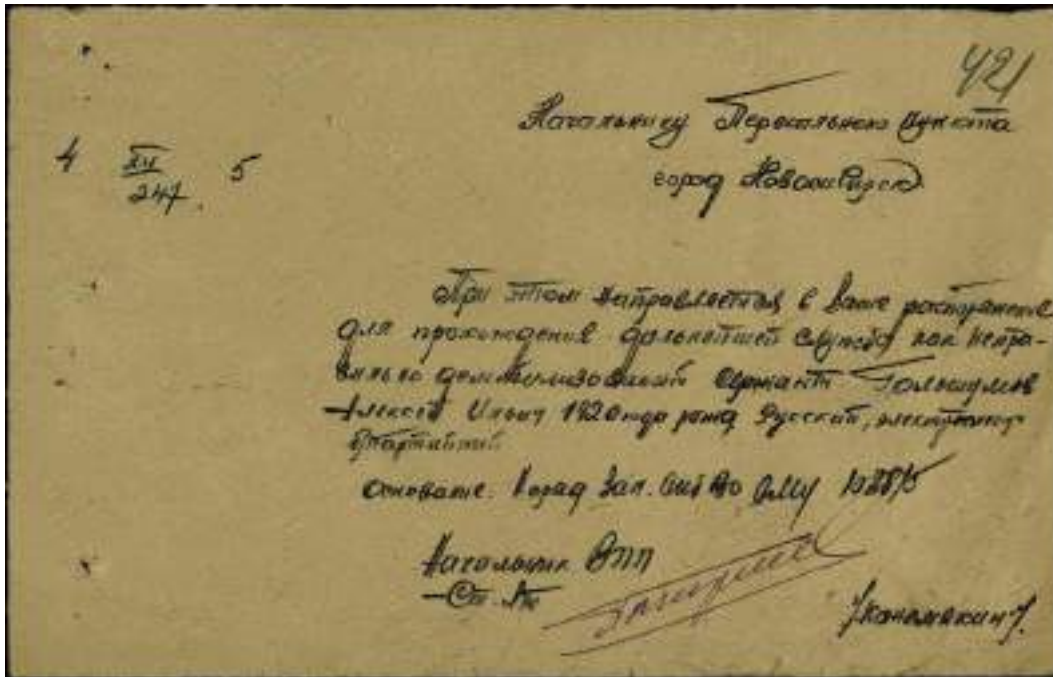 421
Начальнику Пересыльного Пункта
город Новосибирск
4 XII/247 5
При этом направляется в ваше распоряжение
для прохождения дальнейшей службы как непра-
вильно демобилизованный сержант
Алексей Ильич 1920 года рожд Русский,
б/партийный
Основание: Наряд Зап. СибВО ОМУ
Начальник ВПП
Ст. Л-т